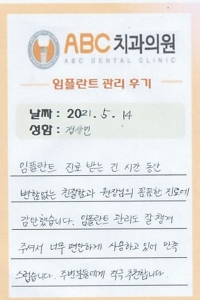 ABC치과의원
ABC DENTAL CLINIC
임플란트 관리 후기
날짜 : 2021. 5. 14
성함 :
임플란트 진료 받는 긴 시간 동안
변함없는 친절함과 원장님의 꼼꼼한 진료에
감탄했습니다. 임플란트 관리도 잘 챙겨
주셔서 너무 편안하게 사용하고 있어 만족
스럽습니다. 주변분들에게 적극 추천합니다.